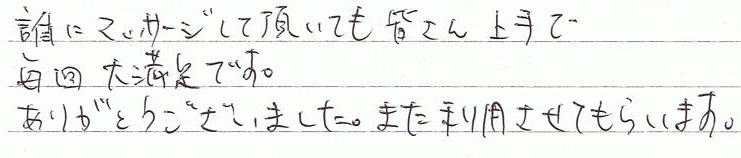 誰にマッサージして頂いても皆さん上手で
毎回大満足です。
ありがとうございました。また利用させてもらいます。